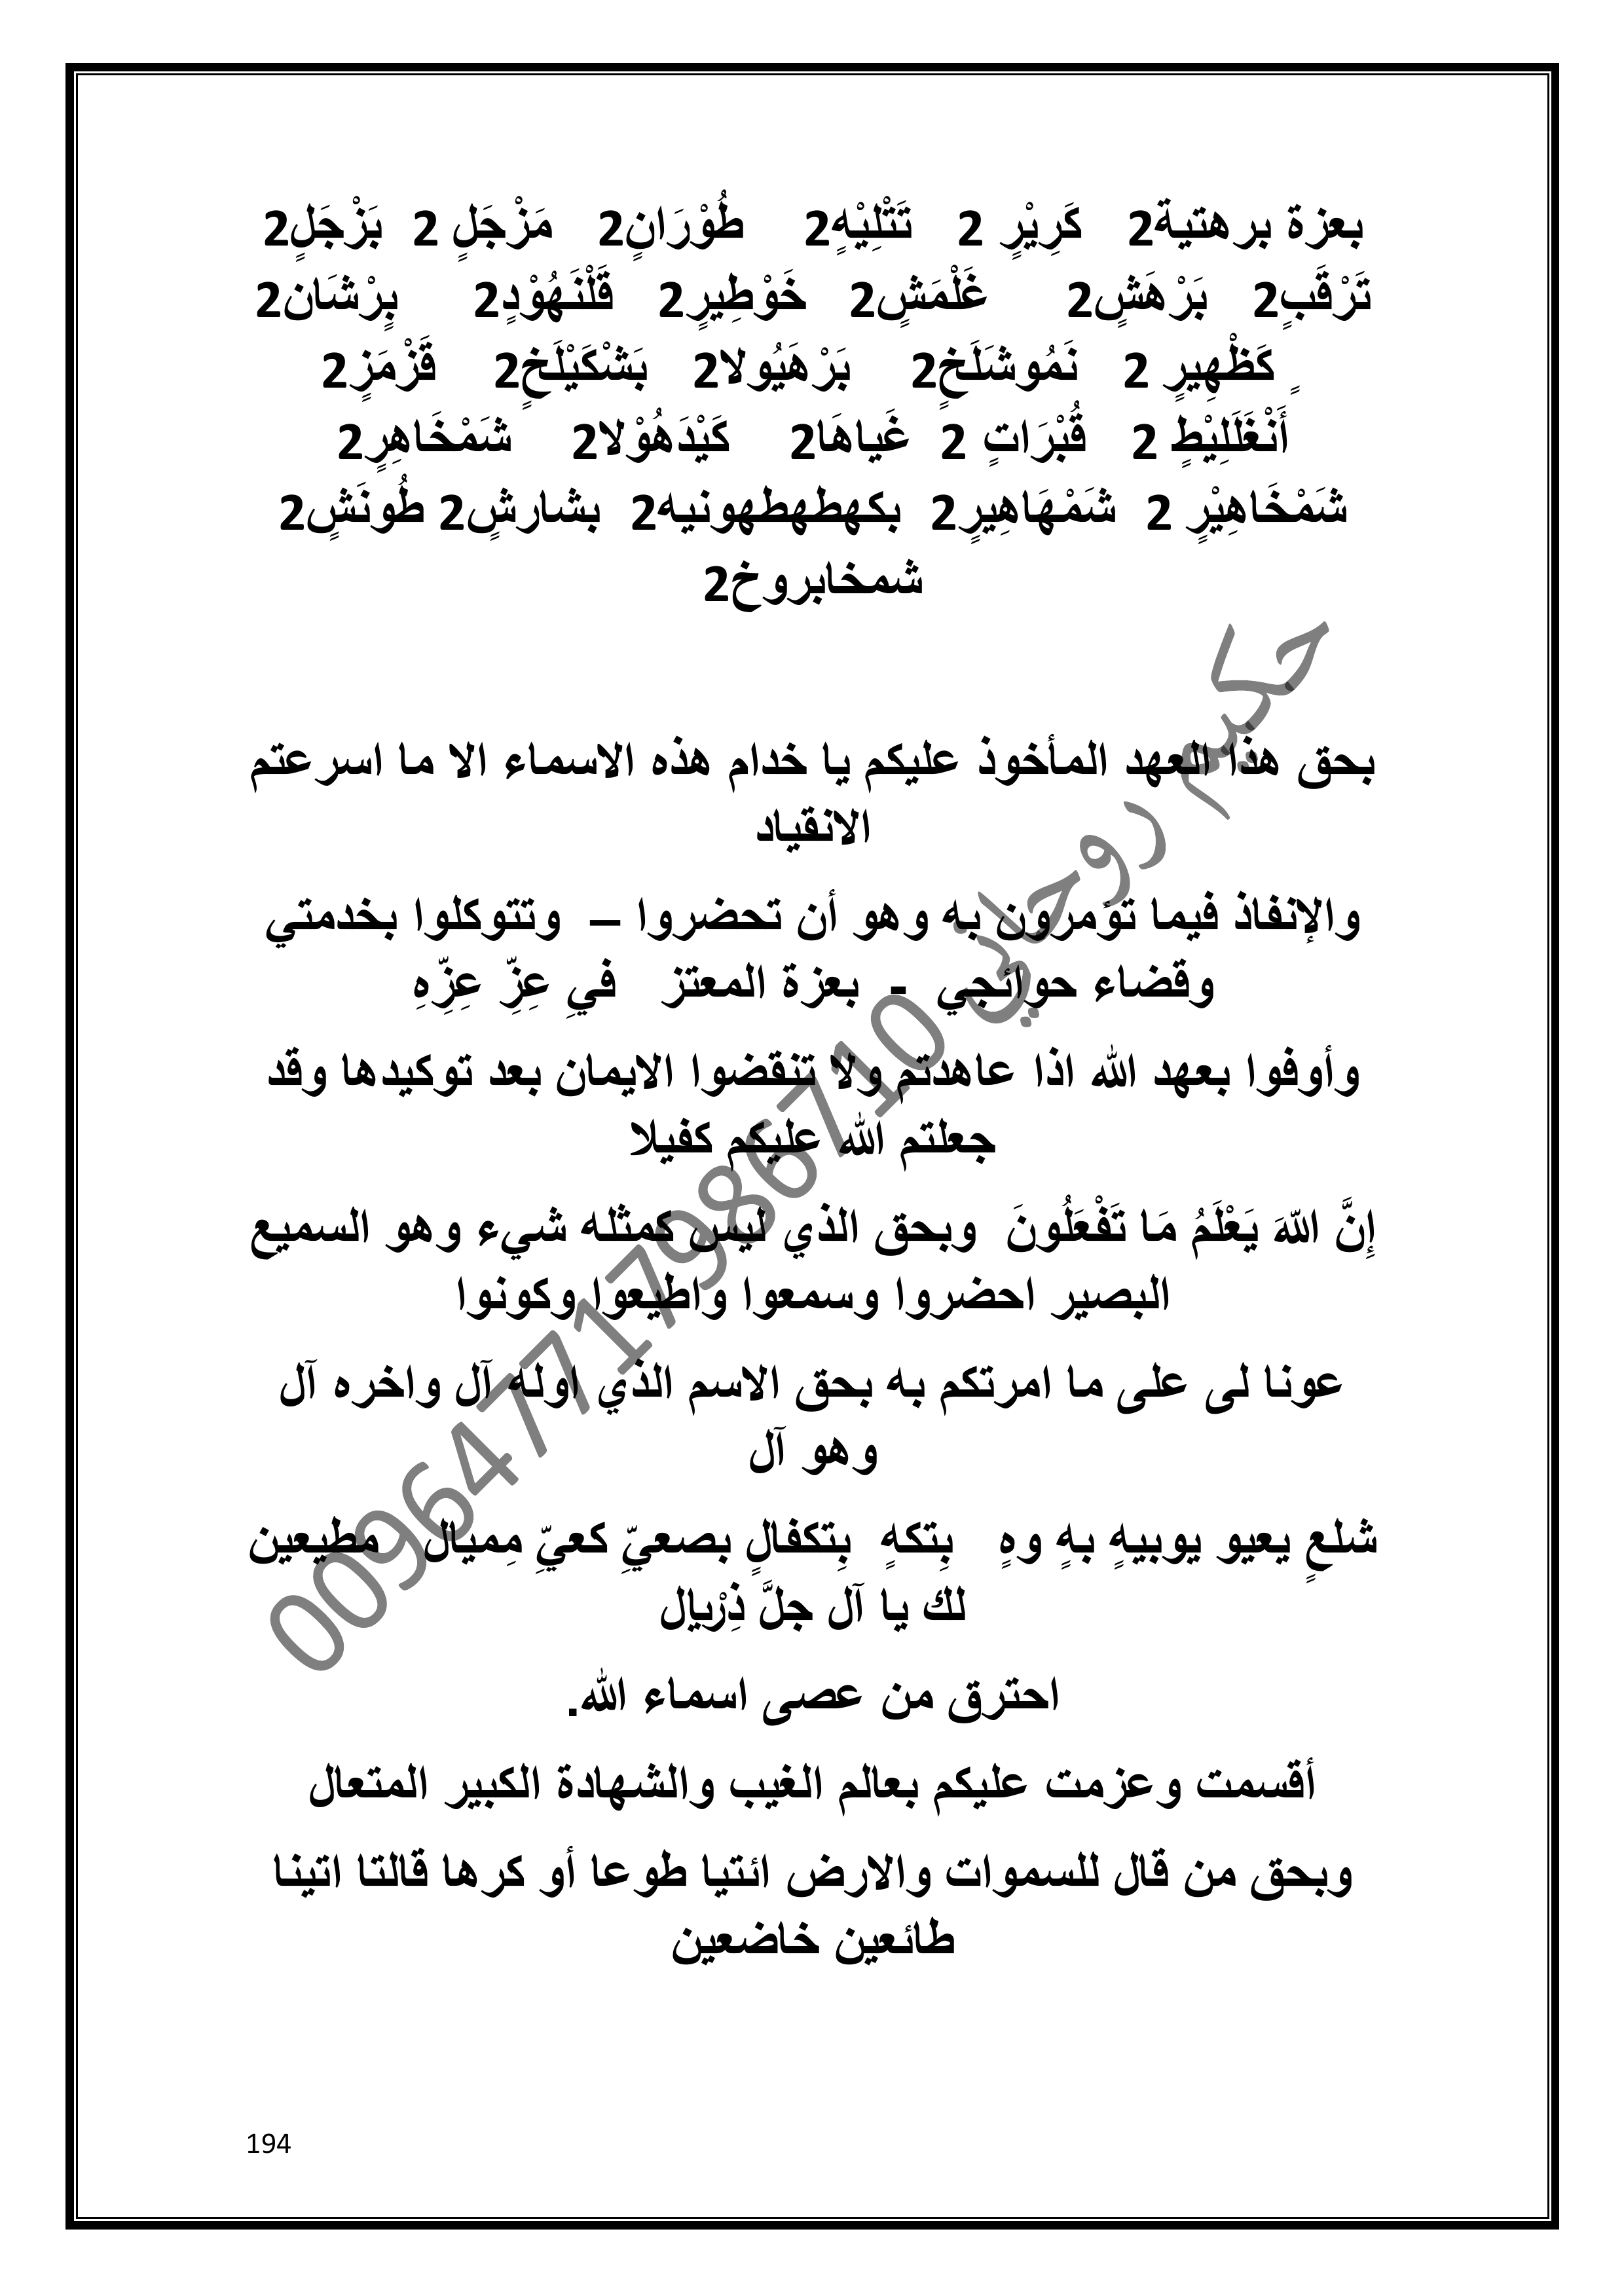 بعزة برهتية2 كَرِيْرٍ 2 تَتْلِيْهٍ2 طُوْرَانٍ2 مَزْجَلٍ 2 بَزْجَلٍ2
تَرْقَبٍ2 بَرْهَشٍ2 غَلْمَشٍ2 خَوْطِيرٍ2 قَلْنَهُوْدٍ2 بِرْشَان2
ٍ كَظْهِيرٍ 2 نَمُوشَلَخٍ2 بَرْهَيُولا2 بَشْكَيْلَخٍ2 قَزْمَزٍ2
أَنْغَلَلِيْطٍ 2 قُبْرَاتٍ 2 غَياهَا2 كَيْدَهُوْلا2 شَمْخَاهِرٍ2
شَمْخَاهِيْرٍ 2 شَمْهَاهِيرٍ2 بكهطهطهونيه2 بشارشٍ2 طُونَشٍ2
شمخابروخ2
بحق هذا العهد المأخوذ عليكم يا خدام هذه الاسماء الا ما اسرعتم
الانقياد
والإنفاذ فيما تؤمرون به وهو أن تحضروا – وتتوكلوا بخدمتي
وقضاء حوائجي - بعزة المعتز فيِ عِزِّ عِزِّهِ
وأوفوا بعهد الله اذا عاهدتم ولا تنقضوا الايمان بعد توكيدها وقد
جعلتم الله عليكم كفيلا
إِنَّ اللّهَ يَعْلَمُ مَا تَفْعَلُونَ وبحق الذي ليس كمثله شيء وهو السميع
البصير احضروا وسمعوا واطيعوا وكونوا
عونا لى على ما امرتكم به بحق الاسم الذي اوله آل واخره آل
وهو آل
شلعٍ يعيو يوبيهٍ بهٍ وهٍ بِتكهٍ بِتكفالٍ بصعيِّ كعيِّ مِميال مطيعين
لك يا آل جلَّ ذِرْيإل
احترق من عصى اسماء الله.
أقسمت وعزمت عليكم بعالم الغيب والشهادة الكبير المتعال
وبحق من قال للسموات والارض ائتيا طوعا أو كرها قالتا اتينا
طائعين خاضعين
194
حكيم روحاني 009647717986710